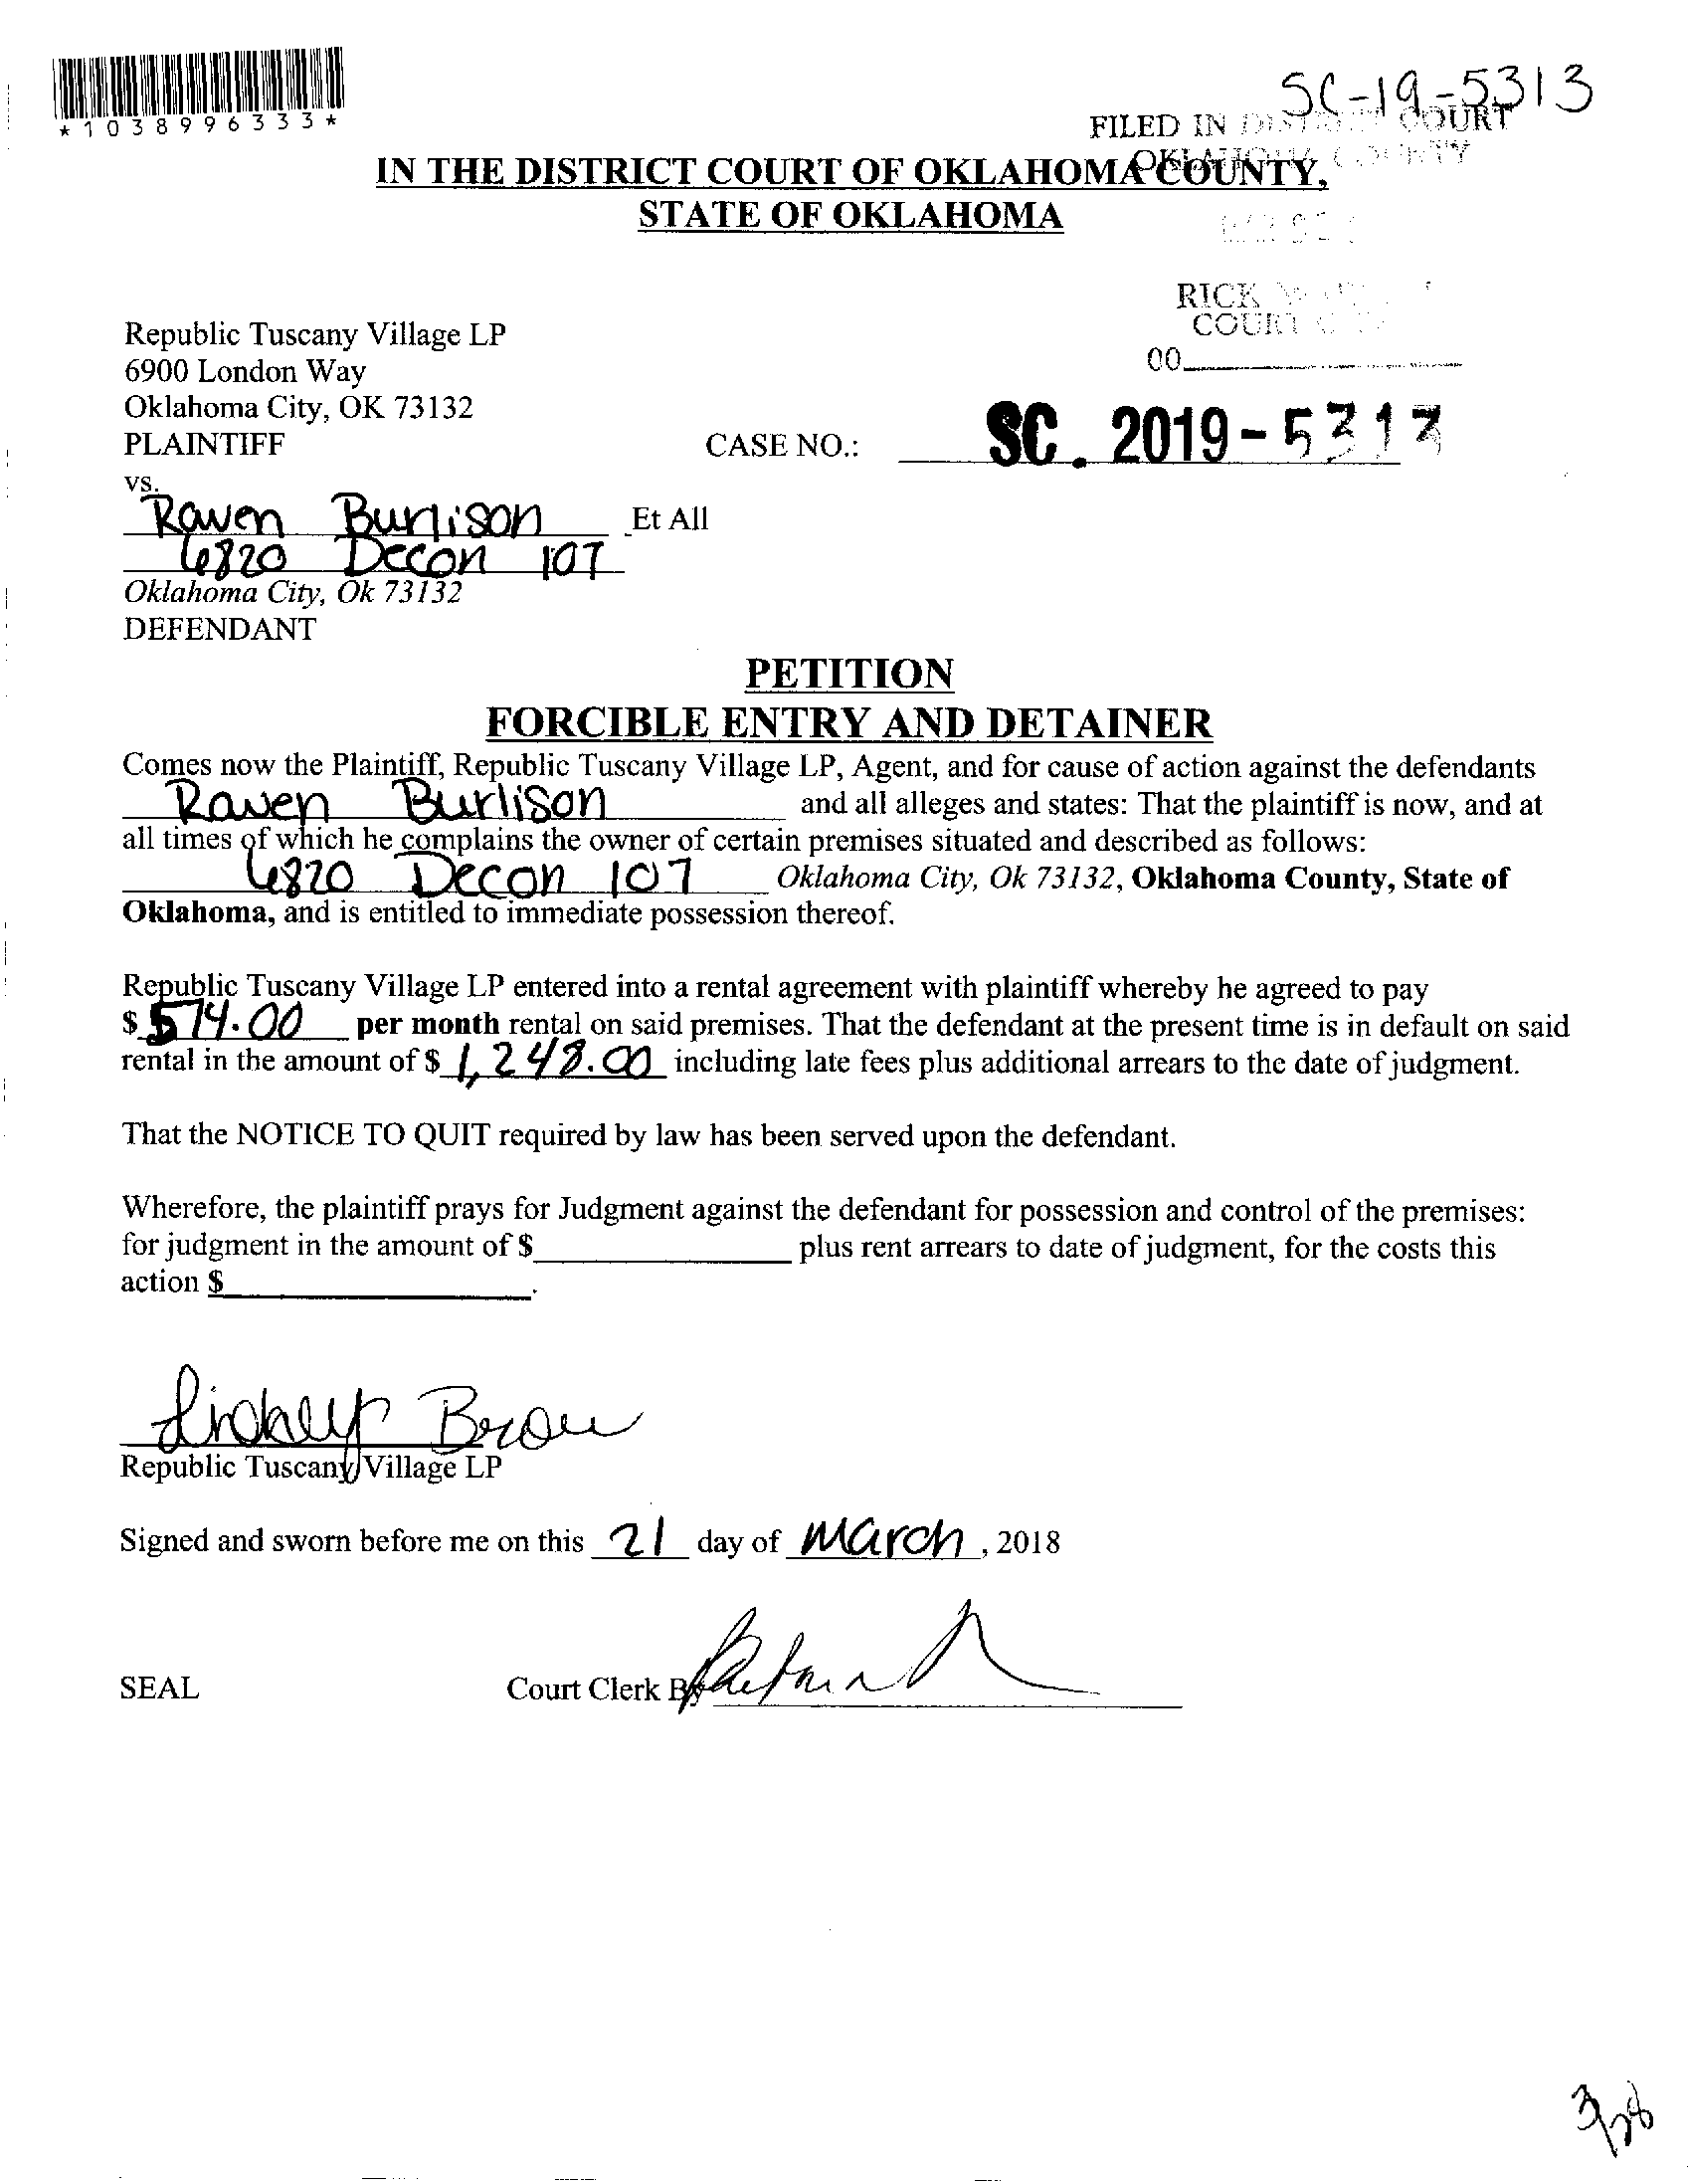 *1038996333*
SC-19-5313
FILED IN DISTRICT COURT
OKLAHOMA COUNTY
IN THE DISTRICT COURT OF OKLAHOMA COUNTY,
STATE OF OKLAHOMA
RICK
COURT
00
Republic Tuscany Village LP
6900 London Way
Oklahoma City, OK 73132
PLAINTIFF CASE NO.: SC. 2019-5313
vs.
Raven Burlison Et All
6820 Decon 107
Oklahoma City, Ok 73132
DEFENDANT
PETITION
FORCIBLE ENTRY AND DETAINER
Comes now the Plaintiff, Republic Tuscany Village LP, Agent, and for cause of action against the defendants
Raven Burlison and all alleges and states: That the plaintiff is now, and at
all times of which he complains the owner of certain premises situated and described as follows:
6820 Decon 107 Oklahoma City, Ok 73132, Oklahoma County, State of
Oklahoma, and is entitled to immediate possession thereof.
Republic Tuscany Village LP entered into a rental agreement with plaintiff whereby he agreed to pay
$ 574.00 per month rental on said premises. That the defendant at the present time is in default on said
rental in the amount of $ 1,248.00 including late fees plus additional arrears to the date of judgment.
That the NOTICE TO QUIT required by law has been served upon the defendant.
Wherefore, the plaintiff prays for Judgment against the defendant for possession and control of the premises:
for judgment in the amount of $ plus rent arrears to date of judgment, for the costs this
action $ .
Republic Tuscany Village LP
Signed and sworn before me on this 21 day of March, 2018
SEAL Court Clerk By
3/28